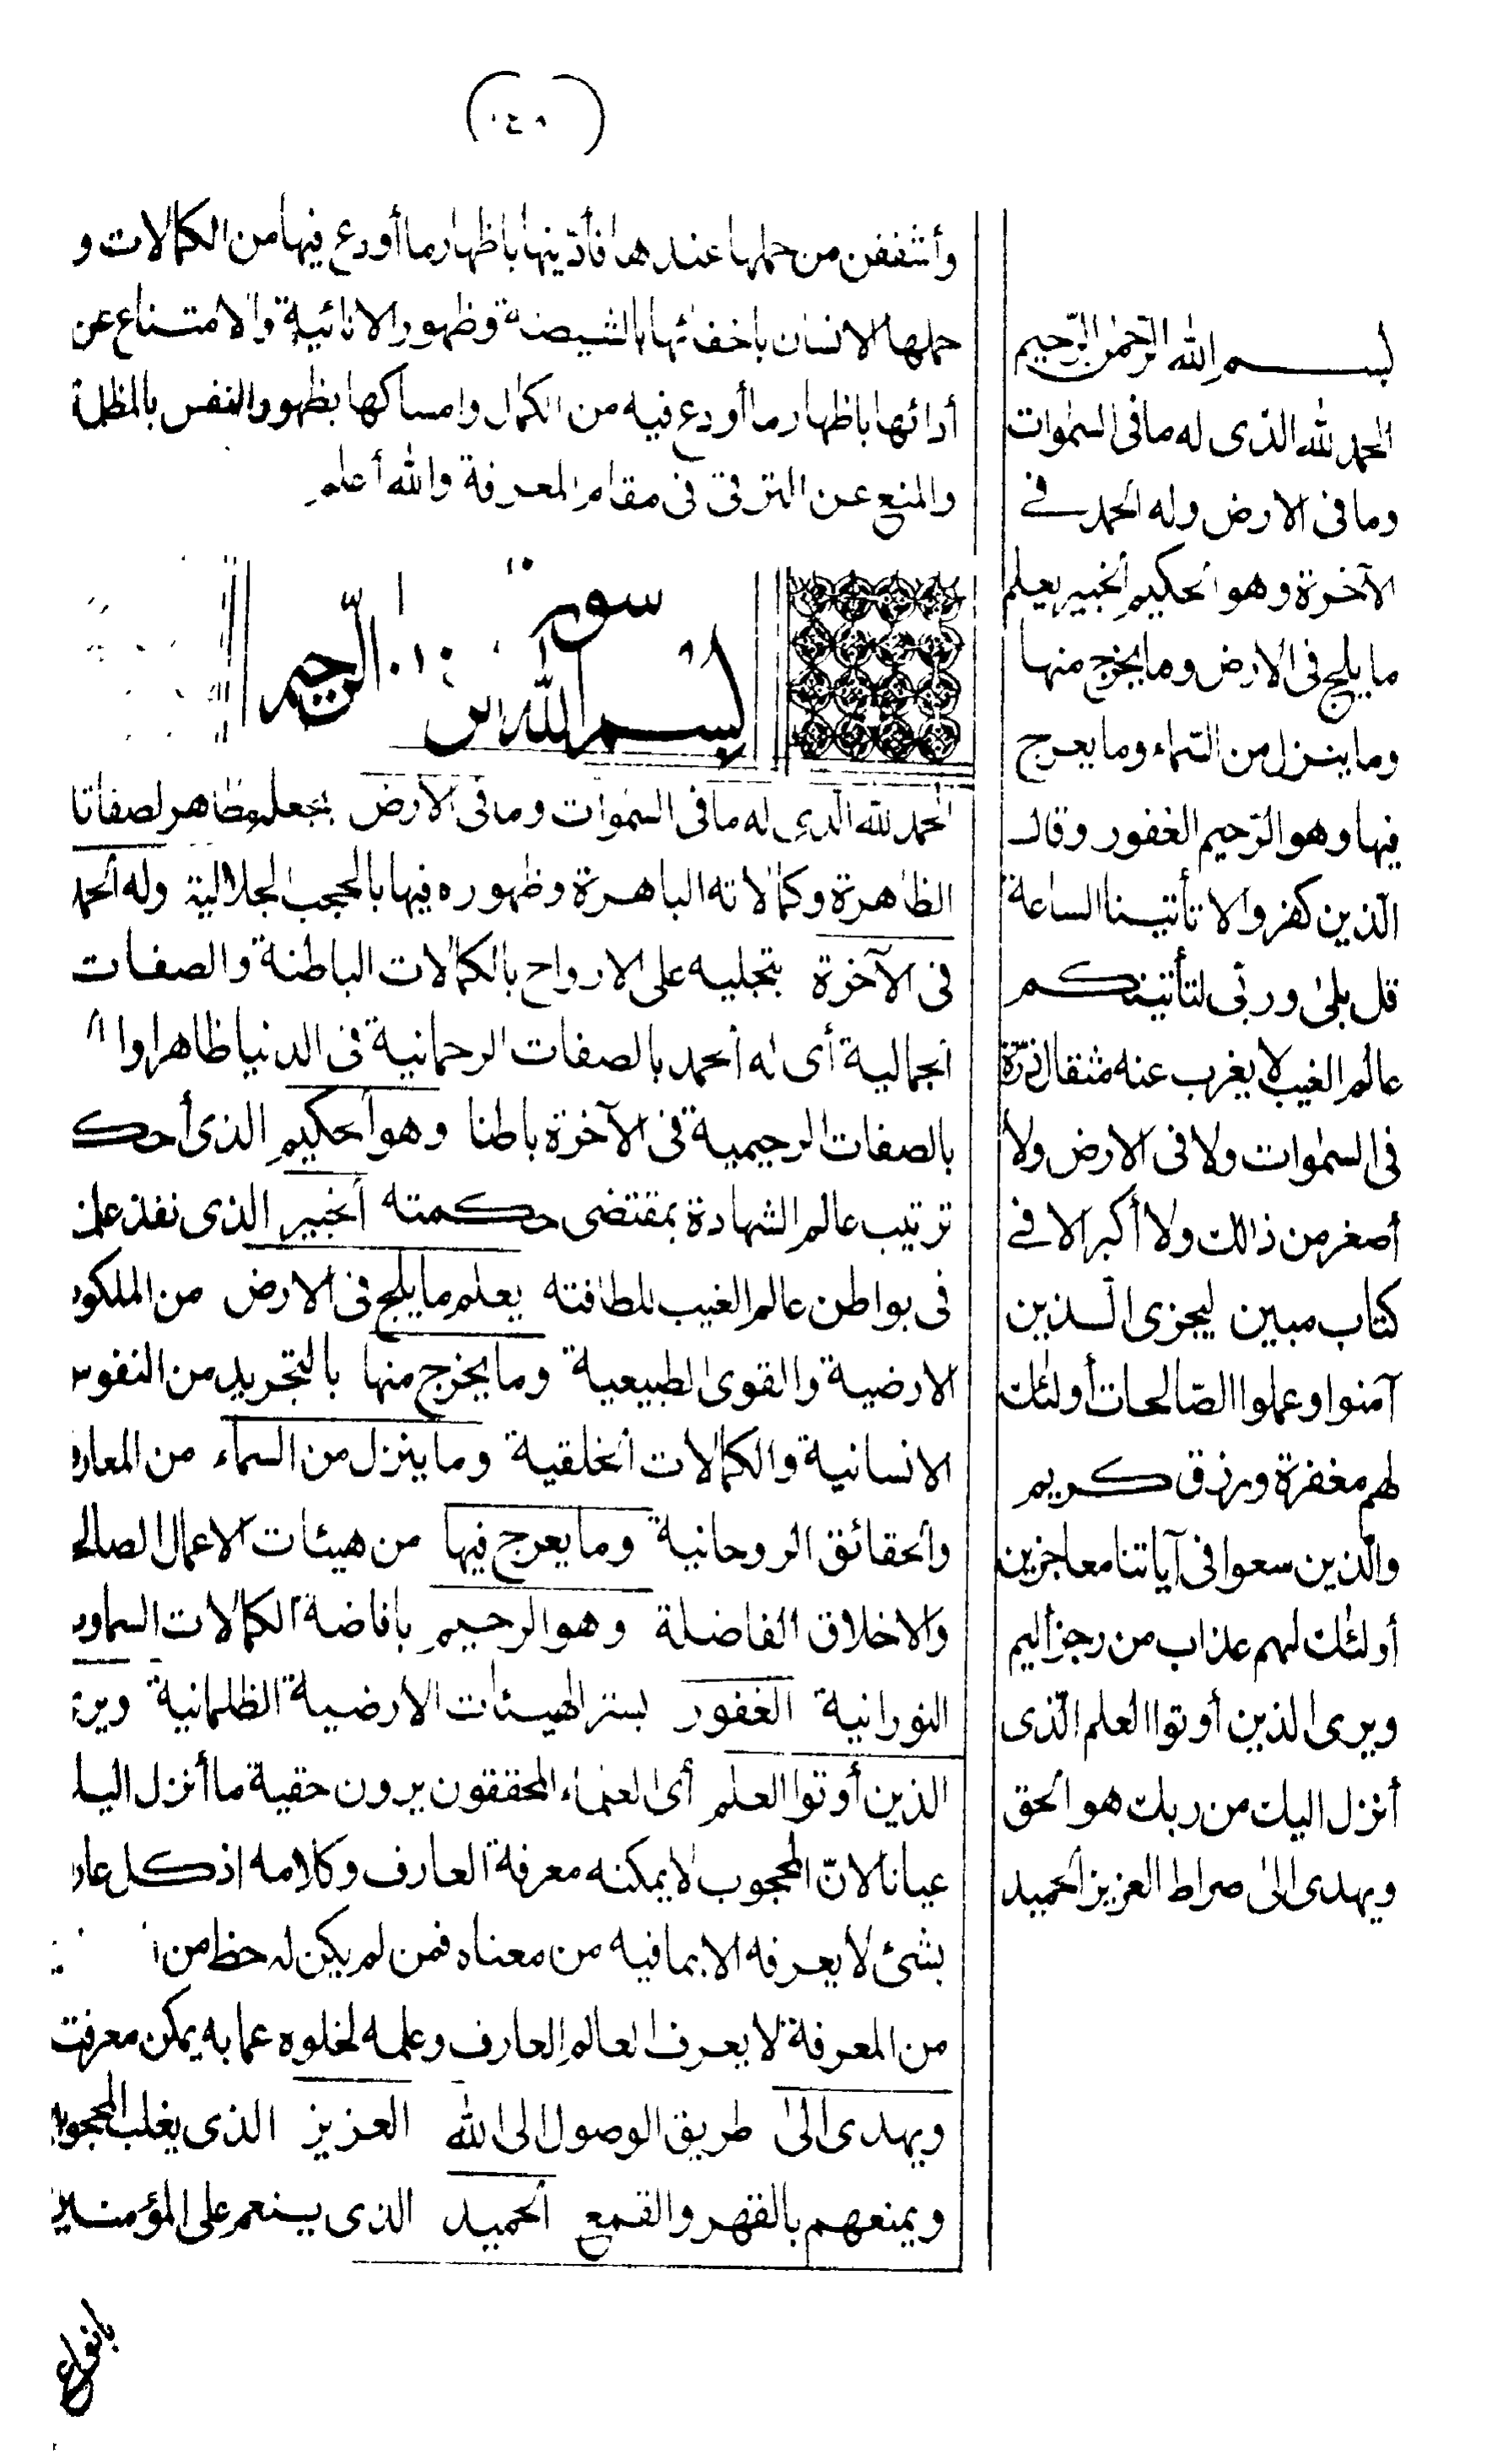 وأشفقن من حملها عندها فأدّينها باظهار ما أودع فيها من الكمالات و
حملها الانسان باخفائها بالشيصنة وظهور الانائية والامتناع عن
أدائها باظهار ما أودع فيه من الكمال وامساكها بظهور النفس بالمظلة
والمنع عن الترقى فى مقام المعرفة والله أعلم
سورة
بسم الله الرحيم
الحمد لله الذى له ما فى السموات وما فى الارض بجعلها مظاهر لصفاتا
الظاهرة وكمالاته الباهرة وظهوره فيها بالحجب الجلالية وله الحمد
فى الآخرة بتجليه على الارواح بالكمالات الباطنة والصفات
الجمالية أى له الحمد بالصفات الرحمانية فى الدنيا ظاهرا وا
بالصفات الرحيمية فى الآخرة باطنا وهو الحكيم الذى أحك
ترتيب عالم الشهادة بمقتضى حكمته الخبير الذى نفذ علـ
فى بواطن عالم الغيب للطافته يعلم ما يلج فى الارض من الملكو
الارضية والقوى الطبيعية وما يخرج منها بالتجريد من النفوس
الانسانية والكمالات الخلقية وما ينزل من السماء من المعار
والحقائق الروحانية وما يعرج فيها من هيئات الاعمال الصالح
والاخلاق الفاضلة وهو الرحيم بافاضة الكمالات السماوي
النورانية الغفور بستر الهيئات الارضية الظلمانية ويرى
الذين أوتوا العلم أى العلماء المحققون يرون حقية ما أنزل اليـ
عيانا لانّ المحجوب لا يمكنه معرفة العارف وكلامه اذ كل عار
بشئ لا يعرفه الا بما فيه من معناه فمن لم يكن له حظ من
من المعرفة لا يعرف العالم العارف وعلمه لخلوه عما به يمكن معرفت
ويهدى الى طريق الوصول الى الله العزيز الذى يغلب المحجوب
ويمنعهم بالقهر والقمع الحميد الذى ينعم على المؤمنين
بانواع
بسم الله الرّحمن الرّحيم
الحمد لله الذى له ما فى السموات
وما فى الارض وله الحمد فى
الآخرة وهو الحكيم الخبير يعلم
ما يلج فى الارض وما يخرج منها
وما ينزل من السّماء وما يعرج
فيها وهو الرّحيم الغفور وقال
الّذين كفروا لا تأتينا الساعة
قل بلى وربّى لتأتينكم
عالم الغيب لا يغرب عنه مثقال ذرّة
فى السموات ولا فى الارض ولا
أصغر من ذالك ولا أكبر الا فى
كتاب مبين ليجزى الّذين
آمنوا وعملوا الصّالحات أولئك
لهم مغفرة ورزق كريم
والّذين سعوا فى آياتنا معاجزين
أولئك لهم عذاب من رجز أليم
ويرى الذين أوتوا العلم الّذى
أنزل اليك من ربك هو الحق
ويهدى الى صراط العزيز الحميد